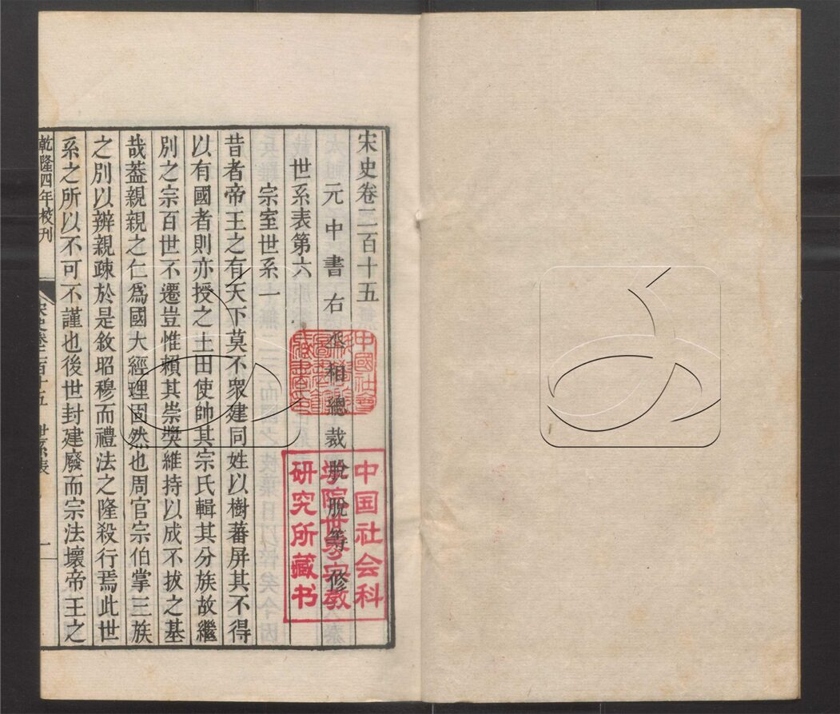 宋史卷二百十五
元中書右丞相總裁脫脫等修
世系表第六
宗室世系一
昔者帝王之有天下莫不衆建同姓以樹蕃屏其不得
以有國者則亦授之土田使帥其宗氏輯其分族故繼
別之宗百世不遷豈惟賴其崇奬維持以成不拔之基
哉蓋親親之仁爲國大經理固然也周官宗伯掌三族
之別以辨親疎於是敘昭穆而禮法之隆殺行焉此世
系之所以不可不謹也後世封建廢而宗法壞帝王之
乾隆四年校刊
宋史卷二百十五
世系表
一
中国社会科
学院世界宗教
研究所藏书